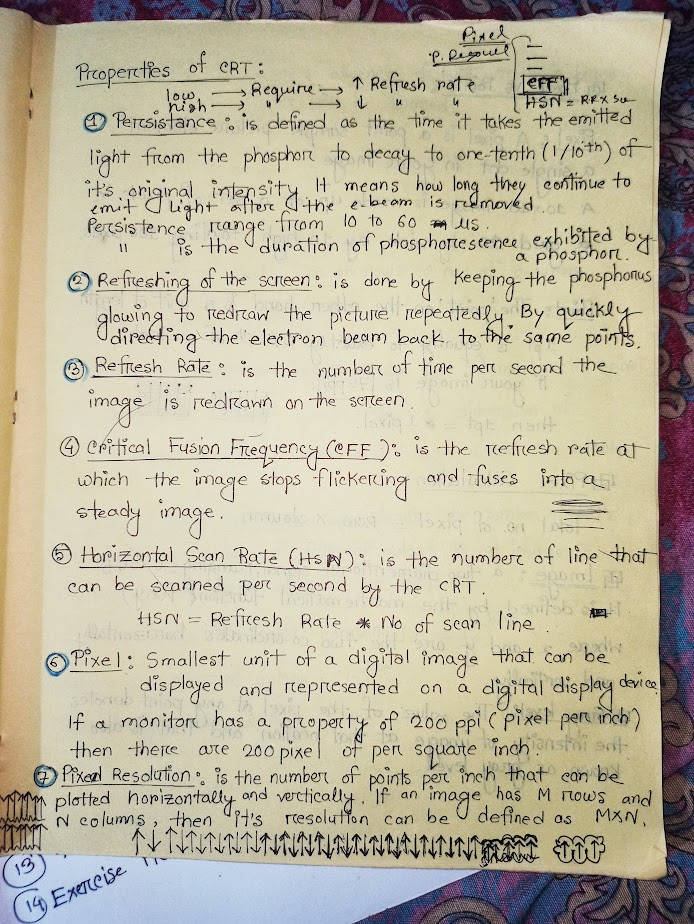 Pixel
P. Resoluti
CFF
HSN = RR X Su
Properties of CRT :
low → Require → ↑ Refresh rate
high → " → ↓ " "
① Persistance : is defined as the time it takes the emitted
light from the phosphor to decay to one-tenth (1/10th) of
it's original intensity. It means how long they continue to
emit light after the e-beam is removed.
Persistence range from 10 to 60 us.
" is the duration of phosphorescence exhibited by
a phosphor.
② Refreshing of the screen : is done by keeping the phosphorus
glowing to redraw the picture repeatedly. By quickly
directing the electron beam back to the same points.
③ Refresh Rate : is the number of time per second the
image is redrawn on the screen.
④ Critical Fusion Frequency (CFF) : is the refresh rate at
which the image stops flickering and fuses into a
steady image.
⑤ Horizontal Scan Rate (HSN) : is the number of line that
can be scanned per second by the CRT.
HSN = Refresh Rate * No of scan line.
⑥ Pixel : Smallest unit of a digital image that can be
displayed and represented on a digital display device.
If a monitor has a property of 200 ppi (pixel per inch)
then there are 200 pixel of per square inch.
⑦ Pixel Resolution : is the number of points per inch that can be
plotted horizontally and vertically. If an image has M rows and
N columns, then it's resolution can be defined as MXN.
13
14 Exercise